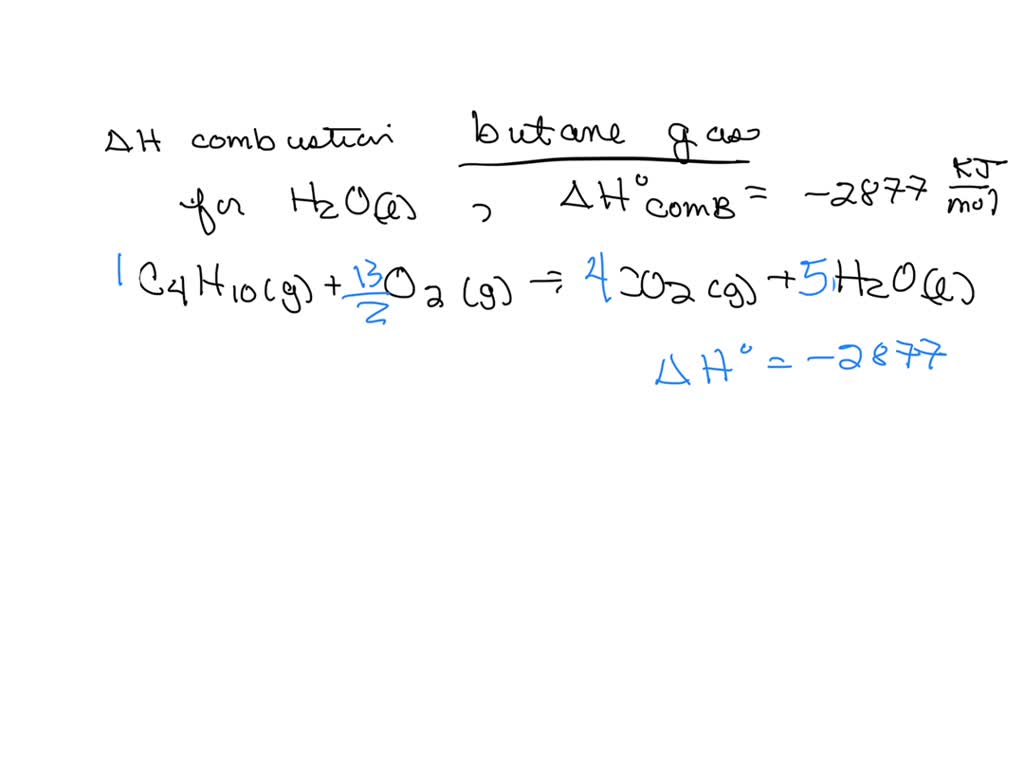 ΔH combustion butane gas
for H2O(l) , ΔH°comB = -2877 KJ/mol
1 C4H10(g) + 13/2 O2 (g) ⇒ 4 CO2 (g) + 5 H2O(l)
ΔH° = -2877